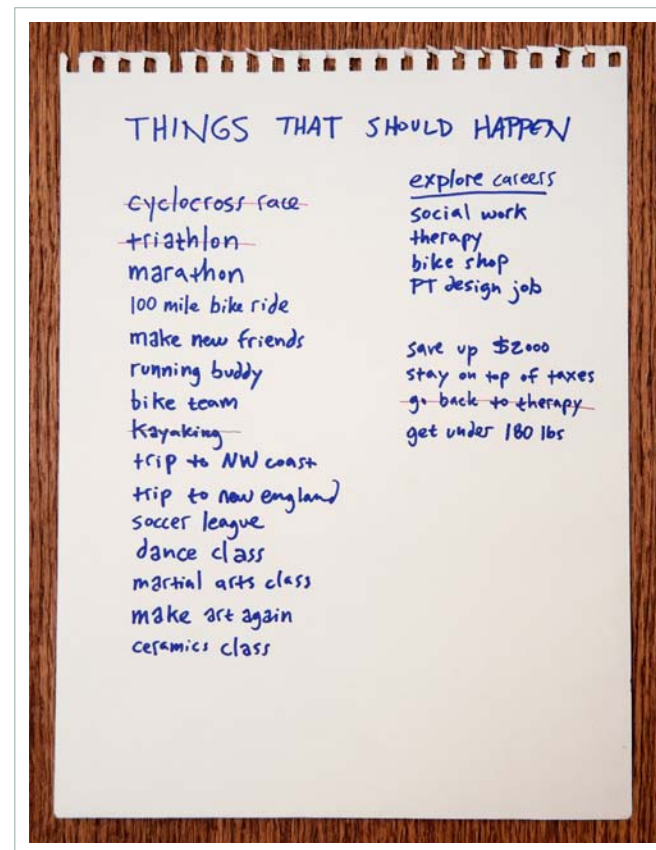 THINGS THAT SHOULD HAPPEN
cyclocross race
triathlon
marathon
100 mile bike ride
make new friends
running buddy
bike team
kayaking
trip to NW coast
trip to new england
soccer league
dance class
martial arts class
make art again
ceramics class
explore careers
social work
therapy
bike shop
PT design job
save up $2000
stay on top of taxes
go back to therapy
get under 180 lbs